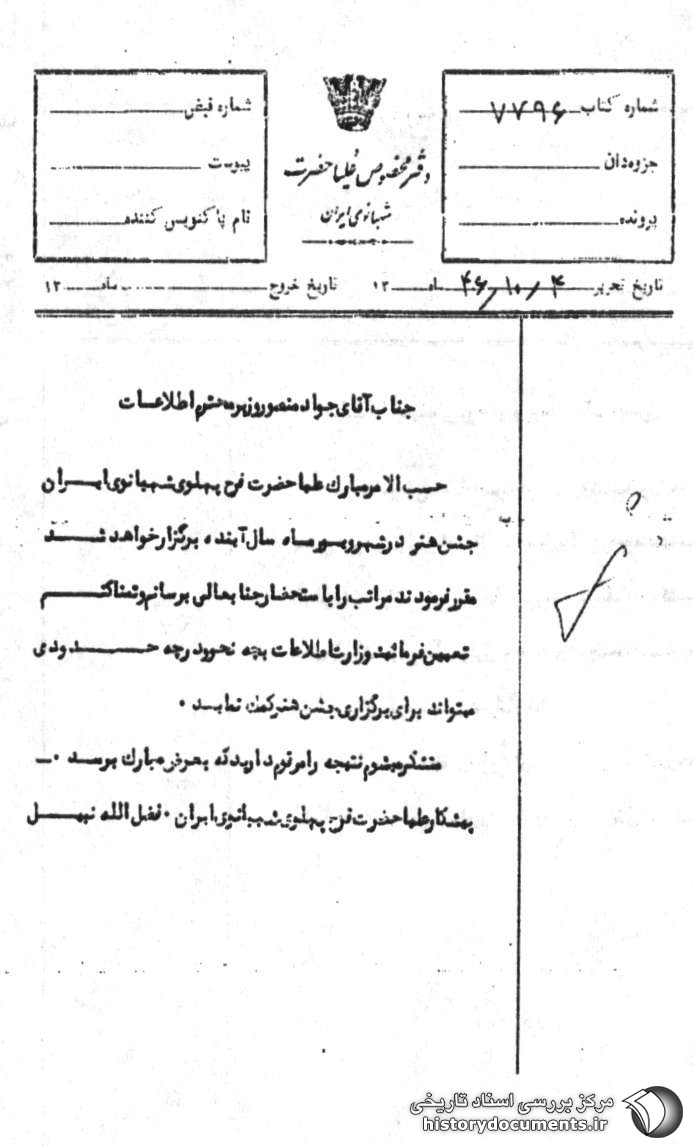 شماره کتاب ۷۷۹۶
جزوه‌دان
پرونده
دفتر مخصوص علیاحضرت
شهبانوی ایران
شماره قبض
پیوست
نام پاکنویس کننده
تاریخ تحریر ۴۶/۱۰/۴ ماه ۱۳
تاریخ خروج ماه ۱۳
جناب آقای جواد منصور وزیر محترم اطلاعات
حسب الامر مبارک علیاحضرت فرح پهلوی شهبانوی ایران
جشن هنر در شهریور ماه سال آینده برگزار خواهد شد
مقرر فرمودند مراتب را باستحضار جنابعالی برسانم و تمنا کنم
تعیین فرمائید وزارت اطلاعات بچه نحو و در چه حدودی
میتواند برای برگزاری جشن هنر کمک نماید ۰
متشکر میشوم نتیجه را مرقوم دارید که بعرض مبارک برسد ۰ــ
پیشکار علیاحضرت فرح پهلوی شهبانوی ایران ۰ فضل الله نبیل
مرکز بررسی اسناد تاریخی
historydocuments.ir